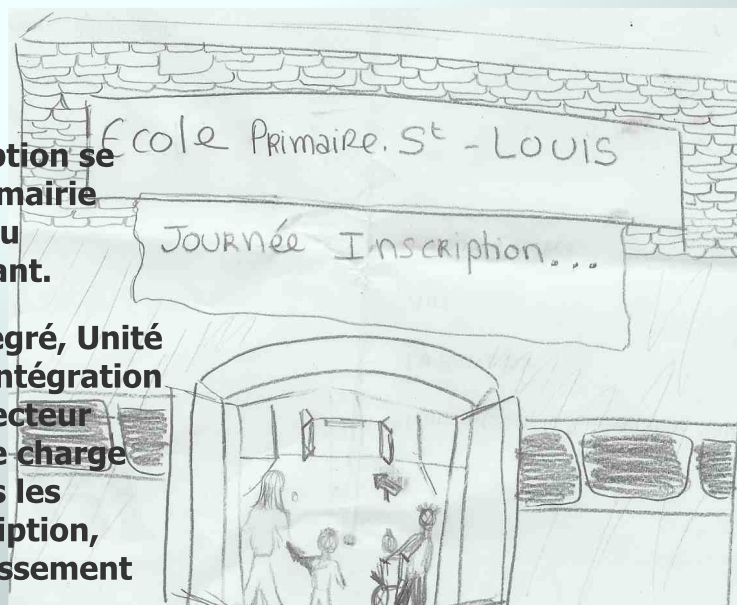 Ecole Primaire. St - Louis
Journée Inscription...
ption se
mairie
u
ant.
egré, Unité
ntégration
ecteur
e charge
s les
iption,
issement